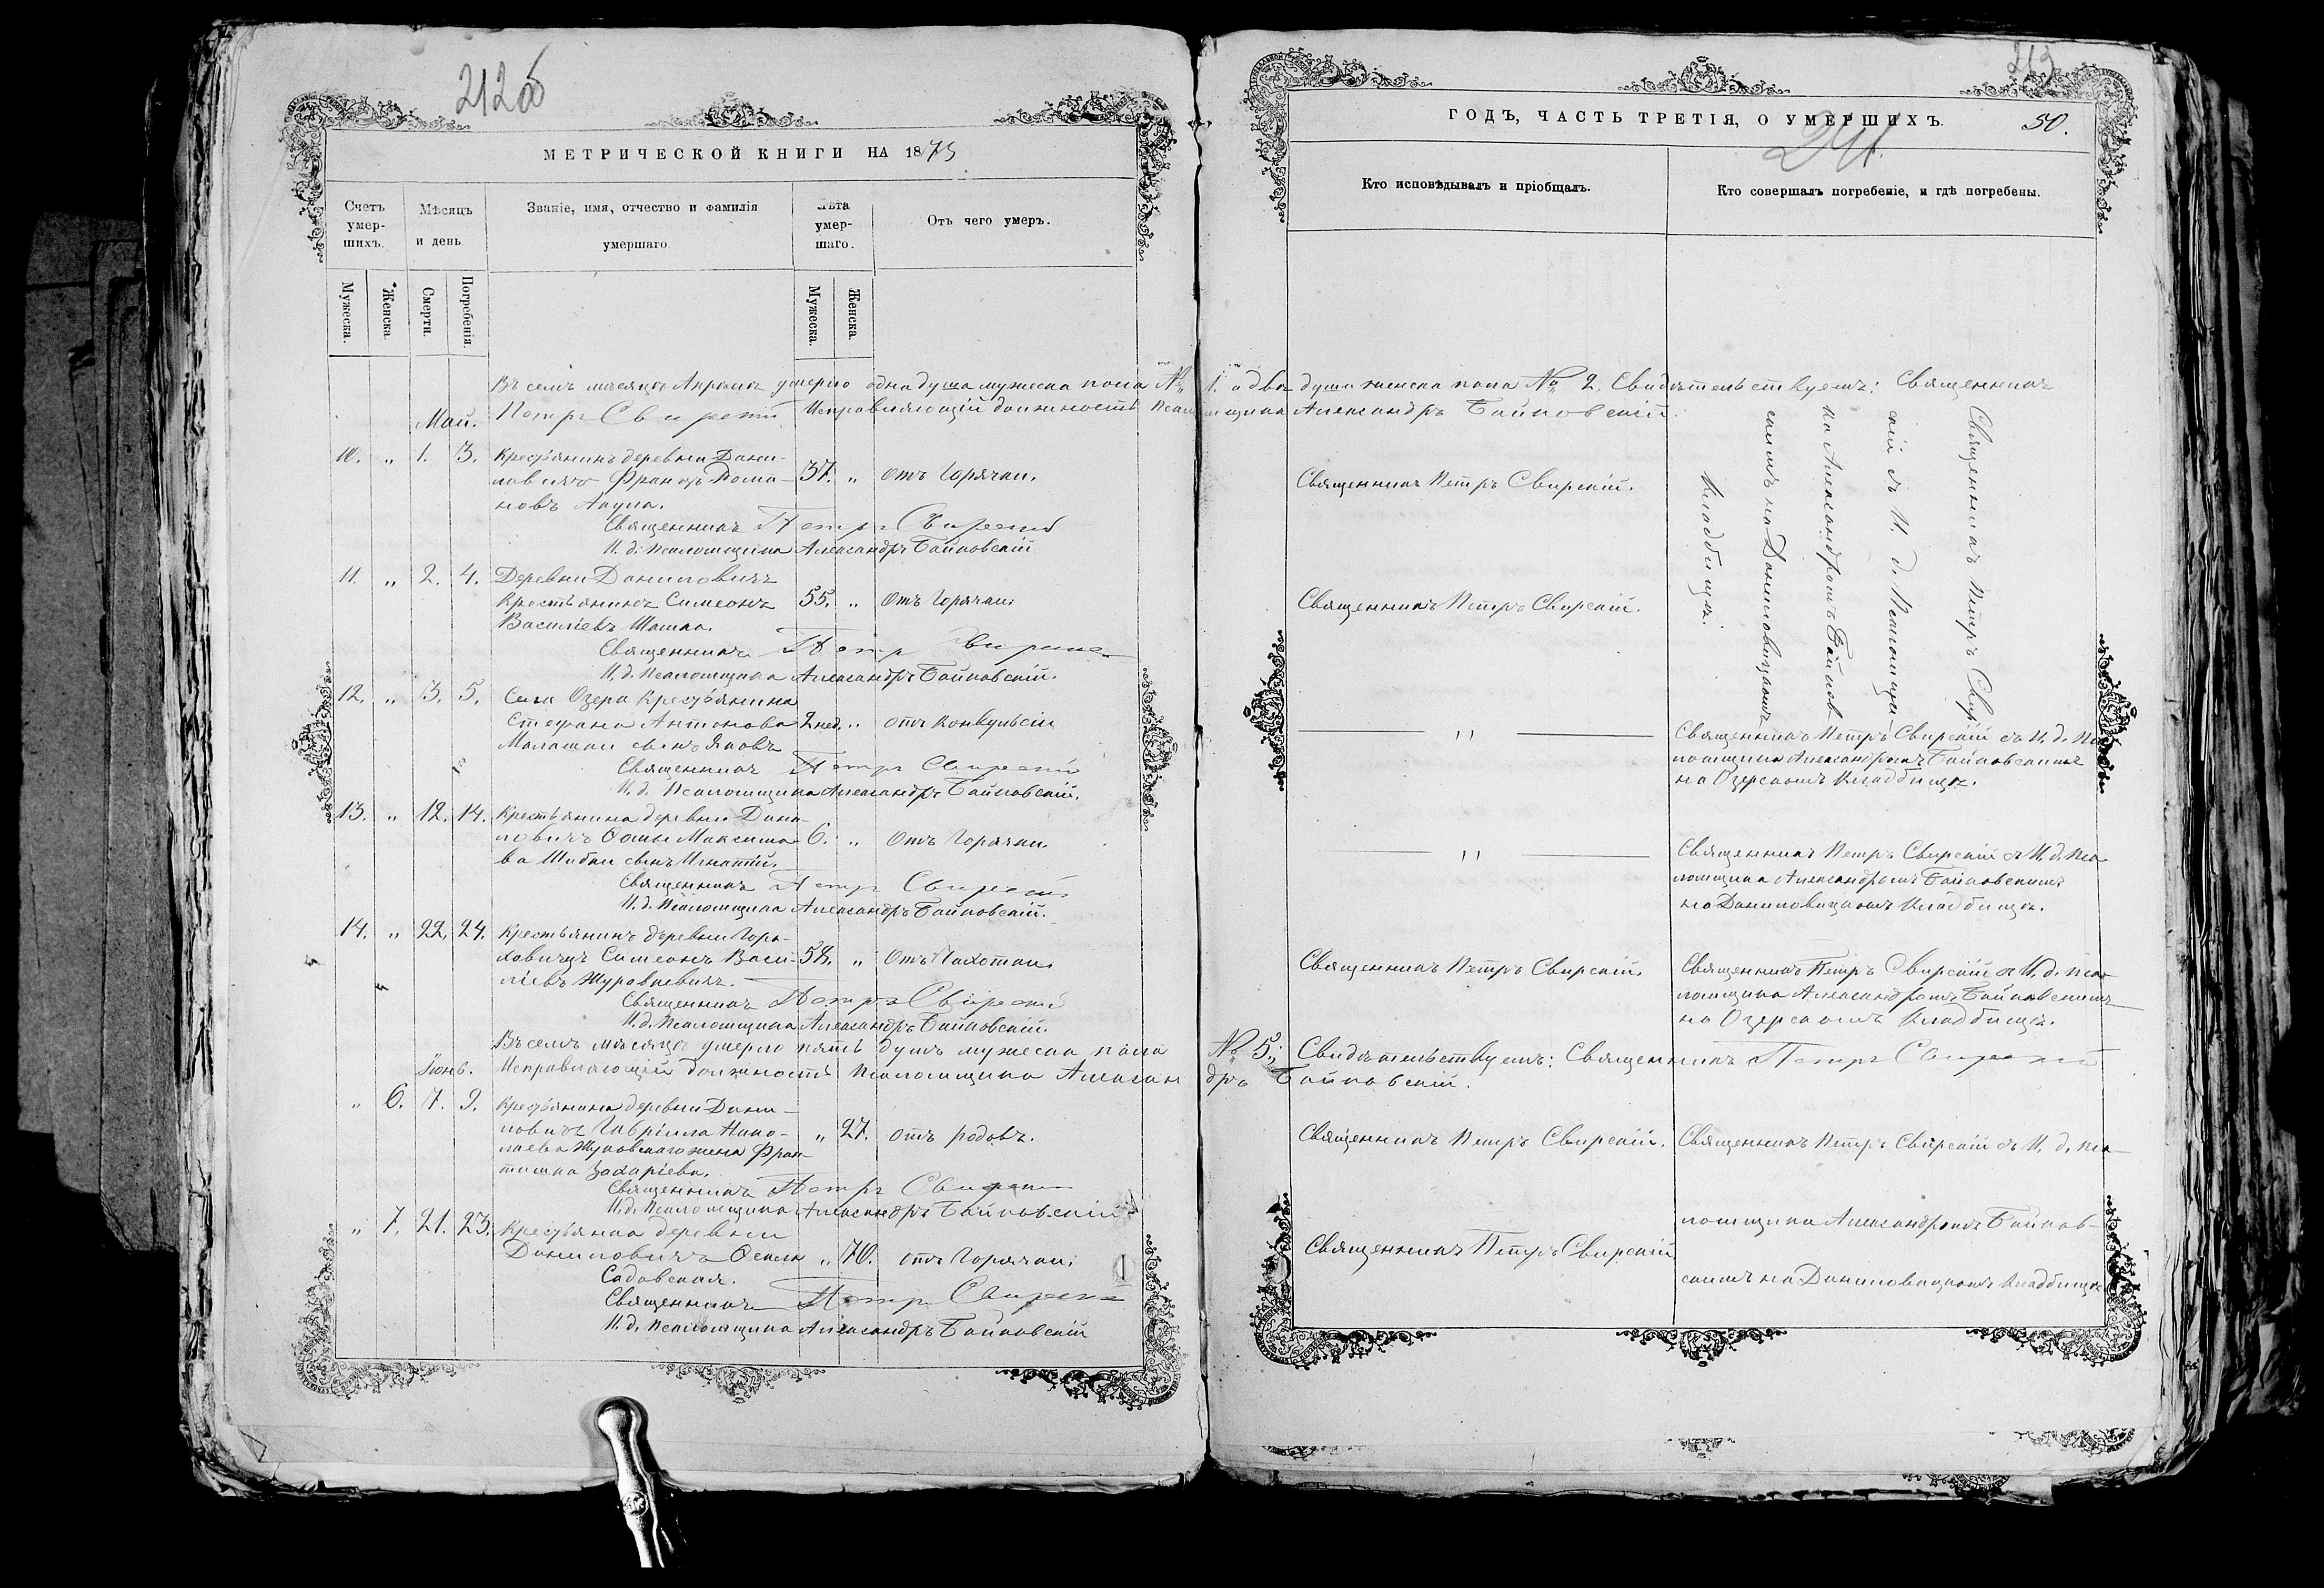 212об
МЕТРИЧЕСКОЙ КНИГИ НА 1875
Счетъ умер-шихъ.
Мѣсяцъ и день
Званіе, имя, отчество и фамилія умершаго
Лѣта умер-шаго.
Отъ чего умеръ.
Мужеска.
Женска.
Смерти.
Погребенія.
Мужеска.
Женска.
Въ семъ мѣсяцѣ Апрѣлѣ умерло одна душа мужеска пола №
Петръ Свирскій Исправляющій должность Псалом
Май.
10. „ 1. 3. Крестьянинъ деревни Дани-
ловичъ Францъ Рома- 37. „ отъ Горячки.
новъ Акула.
Священникъ Петръ Свирскій
И. д. Псаломщика Александръ Байковскій
11. „ 2. 4. Деревни Даниловичъ
Крестьянинъ Симеонъ 55. „ Отъ Горячки.
Василіевъ Шашко.
Священникъ Петръ Свирскій
И. д. Псаломщика Александръ Байковскій.
12. „ 3. 5. Села Озера Крестьянина
Стефана Антонова 2 нед. „ отъ конвульсіи
Малашки сынъ Яковъ
Священникъ Петръ Свирскій
И. д. Псаломщика Александръ Байковскій.
13. „ 12. 14. Крестьянина деревни Дани-
ловичъ Ѳомы Максимо- 6. „ Отъ Горячки.
ва Шибки сынъ Игнатій.
Священникъ Петръ Свирскій
И. д. Псаломщика Александръ Байковскій.
14. „ 22. 24. Крестьянинъ деревни Горя-
ховичъ Симеонъ Васи- 58. „ Отъ Чахотки.
ліевъ Журовкевичъ.
Священникъ Петръ Свирскій
И. д. Псаломщика Александръ Байковскій.
Въ семъ мѣсяцѣ умерло пять душъ мужеска пола
Исправляющій должность Псаломщика Алексан
Іюнь.
„ 6. 7. 9. Крестьянина деревни Дани-
ловичъ Гавріила Нико- „ 27. отъ родовъ.
лаева Жуковскаго жена Фран-
тишка Захаріева.
Священникъ Петръ Свирскій
И. д. Псаломщика Александръ Байковскій
„ 7. 21. 23. Крестьянка деревни
Даниловичъ „ 70. отъ Горячки.
Садовская.
Священникъ Петръ Свирскій
И. д. Псаломщика Александръ Байковскій
213
ГОДЪ, ЧАСТЬ ТРЕТІЯ, О УМЕРШИХЪ.
50.
241.
Кто исповѣдывалъ и пріобщалъ.
Кто совершалъ погребеніе, и гдѣ погребены.
1. и двѣ души женска пола № 2. Свидѣтельствуемъ: Священникъ
щика Александръ Байковскій
Священникъ Петръ Свирскій.
Священникъ Петръ Свирскій.
Священникъ Петръ Свир-
скій съ И. д. Псаломщи-
ка Александромъ Байков-
скимъ на Даниловицкомъ
Кладбищѣ.
„
Священникъ Петръ Свирскій съ И. д. Пса-
ломщика Александромъ Байковскимъ
на Озерскомъ Кладбищѣ.
„
Священникъ Петръ Свирскій съ И. д. Пса-
ломщика Александромъ Байковскимъ
на Даниловицкомъ Кладбищѣ.
Священникъ Петръ Свирскій.
Священникъ Петръ Свирскій съ И. д. Пса-
ломщика Александромъ Байковскимъ
на Озерскомъ Кладбищѣ.
№ 5. Свидѣтельствуемъ: Священникъ Петръ Свирскій
дръ Байковскій.
Священникъ Петръ Свирскій.
Священникъ Петръ Свирскій съ И. д. Пса-
ломщика Александромъ Байков-
Священникъ Петръ Свирскій
скимъ на Даниловицкомъ Кладбищѣ